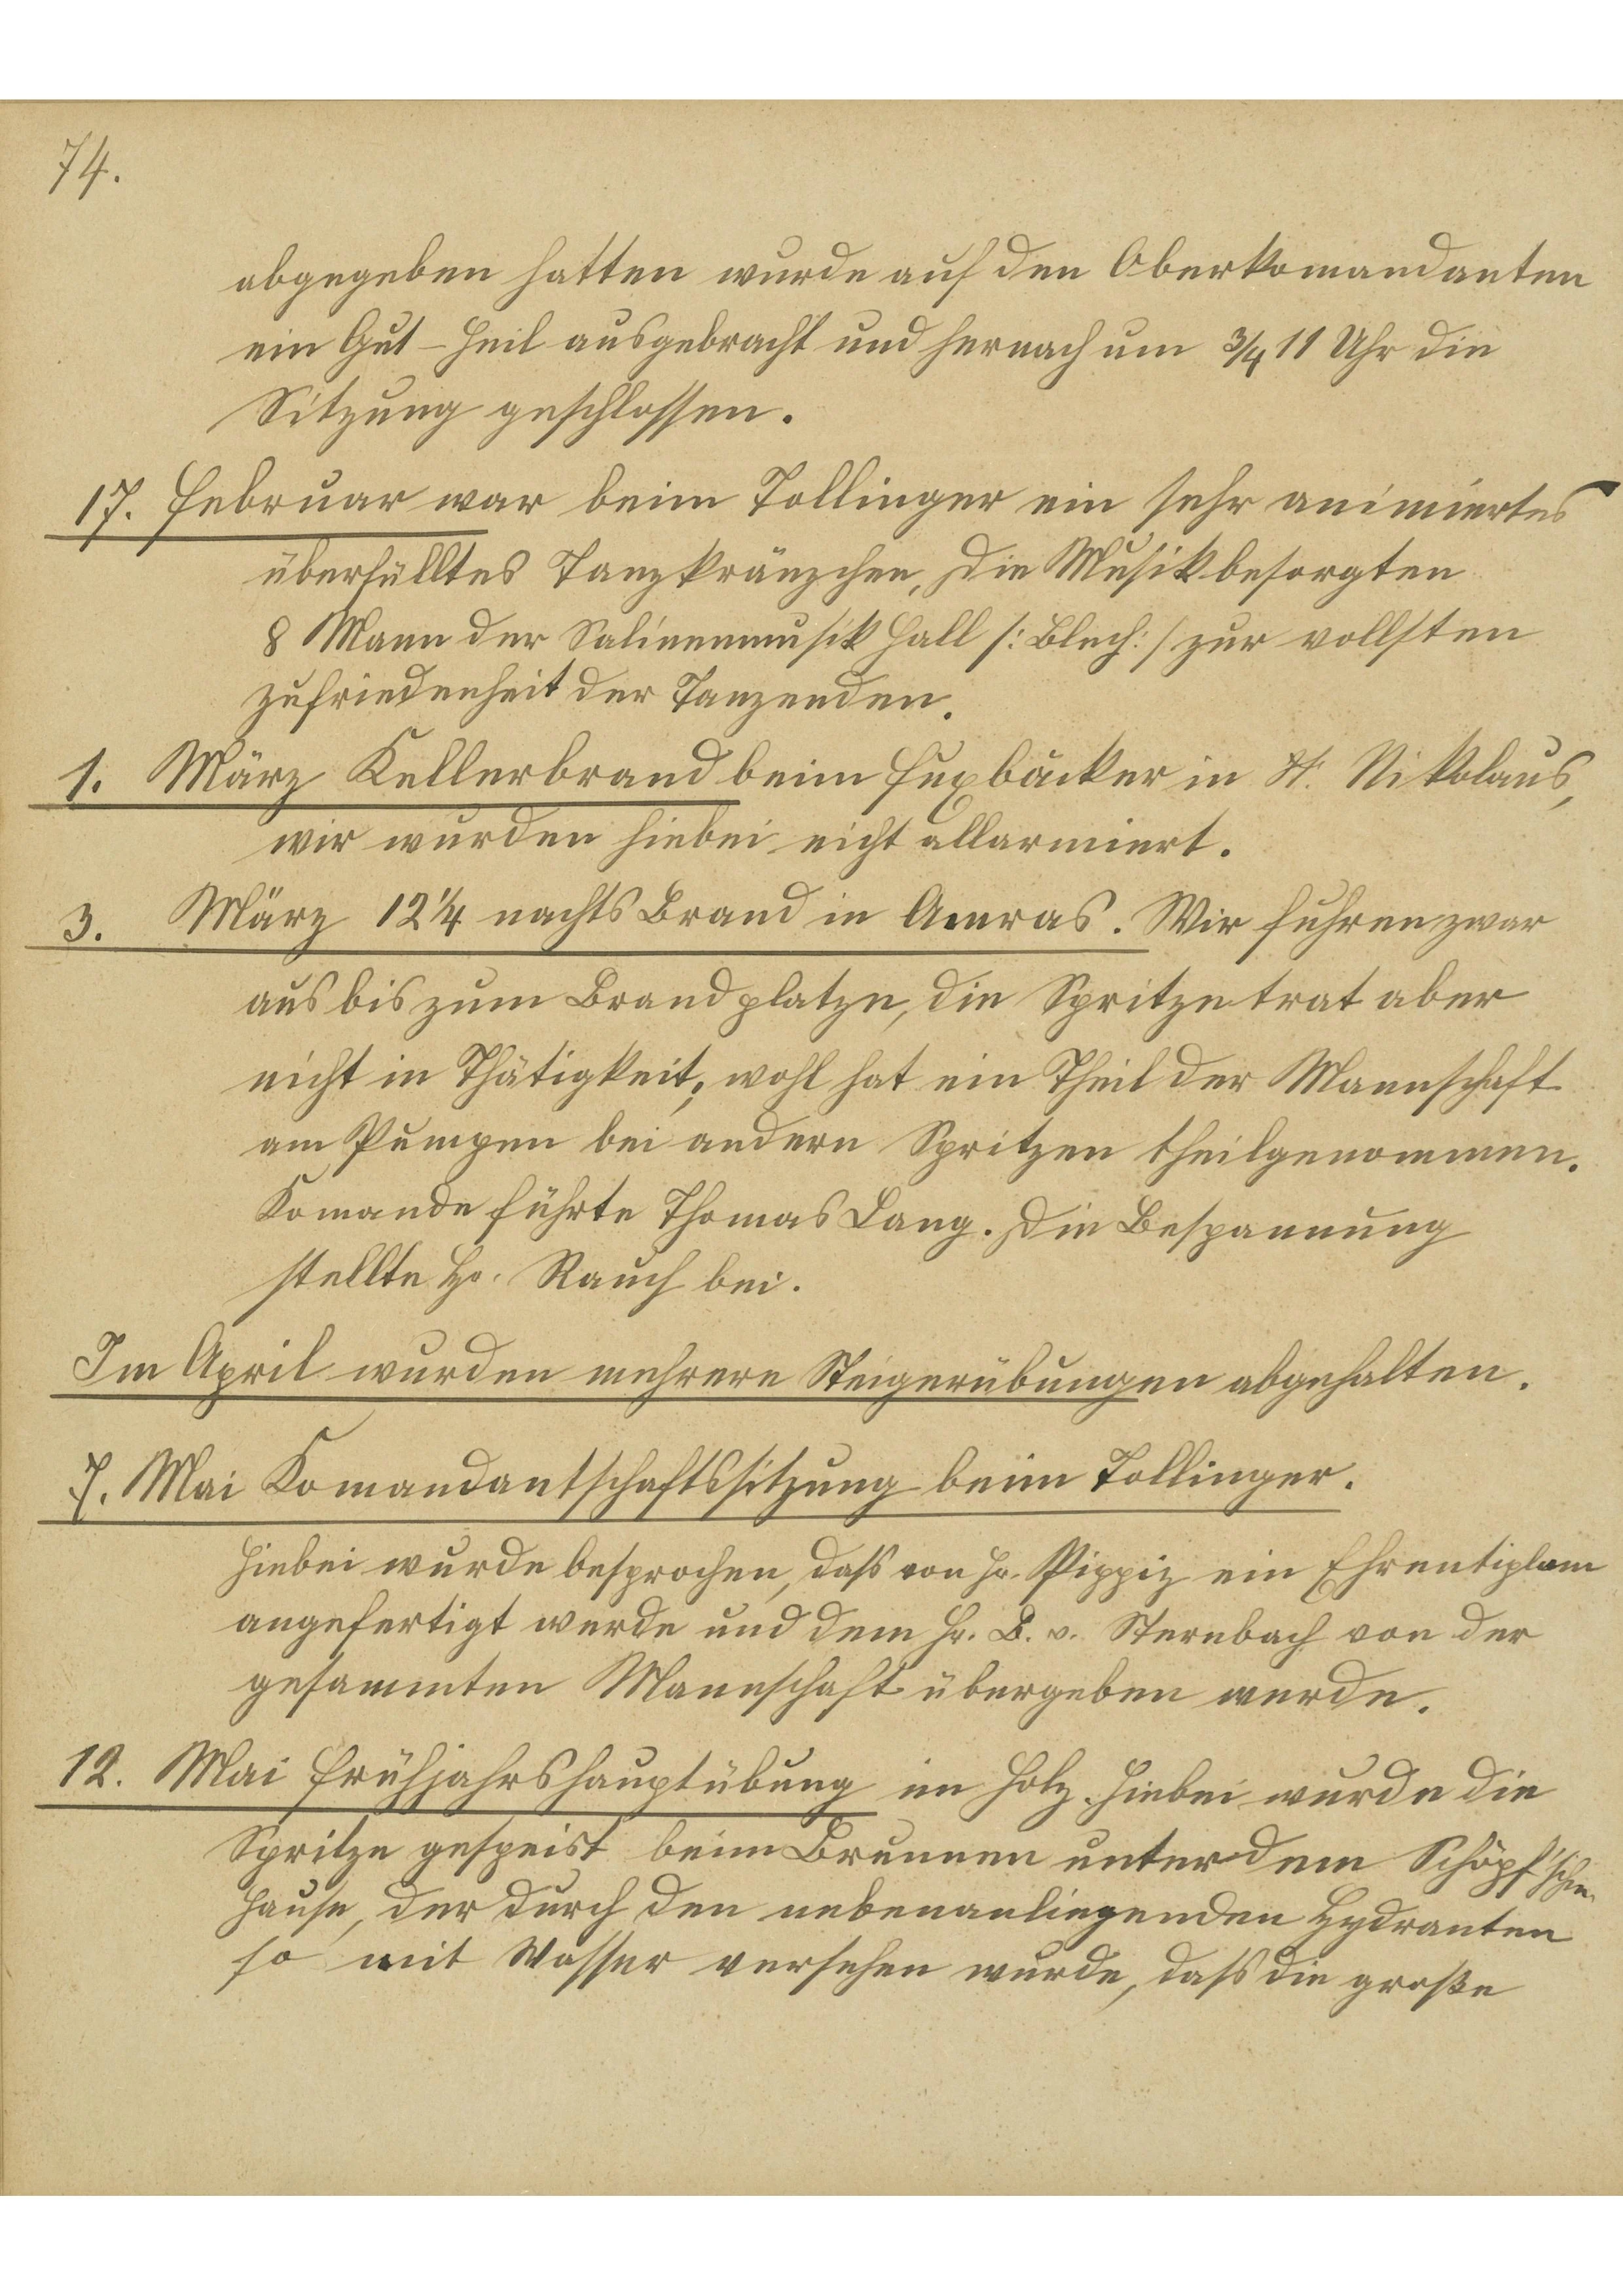 74.
abgegeben hatten wurde auf den Oberkomandanten
ein Gut-Heil ausgebracht und hernach um 3/4 11 Uhr die
Sitzung geschlossen.
17. Februar war beim Tollinger ein sehr animiertes
überfülltes Tanzkränzchen, die Musik besorgten
8 Mann der Salinenmusik Hall /: Blech :/ zur vollsten
Zufriedenheit der Tanzenden.
1. März Kellerbrand beim Fuxbäcker in St. Nikolaus,
wir wurden hiebei nicht allarmiert.
3. März 12 1/4 nachts Brand in Amras. Wir fuhren zwar
aus bis zum Brandplatze, die Spritze trat aber
nicht in Thätigkeit, wohl hat ein Theil der Mannschaft
am Pumpen bei andern Spritzen theilgenommen.
Komande führte Thomas Lang. Die Bespannung
stellte Hr. Rauch bei.
Im April wurden mehrere Steigerübungen abgehalten.
7. Mai Komandantschaftssitzung beim Tollinger.
Hiebei wurde besprochen, dass von Hr. Pippiz ein Ehrentiplom
angefertigt werde und dem Hr. B. v. Sternbach von der
gesammten Mannschaft übergeben werde.
12. Mai Frühjahrshauptübung im Holz. Hiebei wurde die
Spritze gespeist beim Brunnen unter dem Schöpf'schen
Hause, der durch den nebenanliegenden Hydranten
so mit Wasser versehen wurde, dass die große